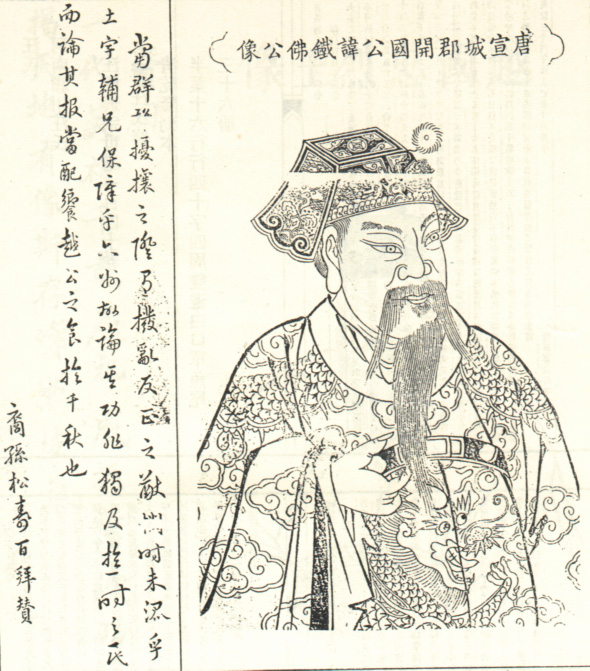 唐宣城郡開國公諱鐵佛公像
當群雄擾攘之際有撥亂反正之猷雖時未混乎
土宇輔兄保障乎六州故論其功非獨及於一時之民
而論其报當配饗越公之食於千秋也
裔孫松壽百拜贊